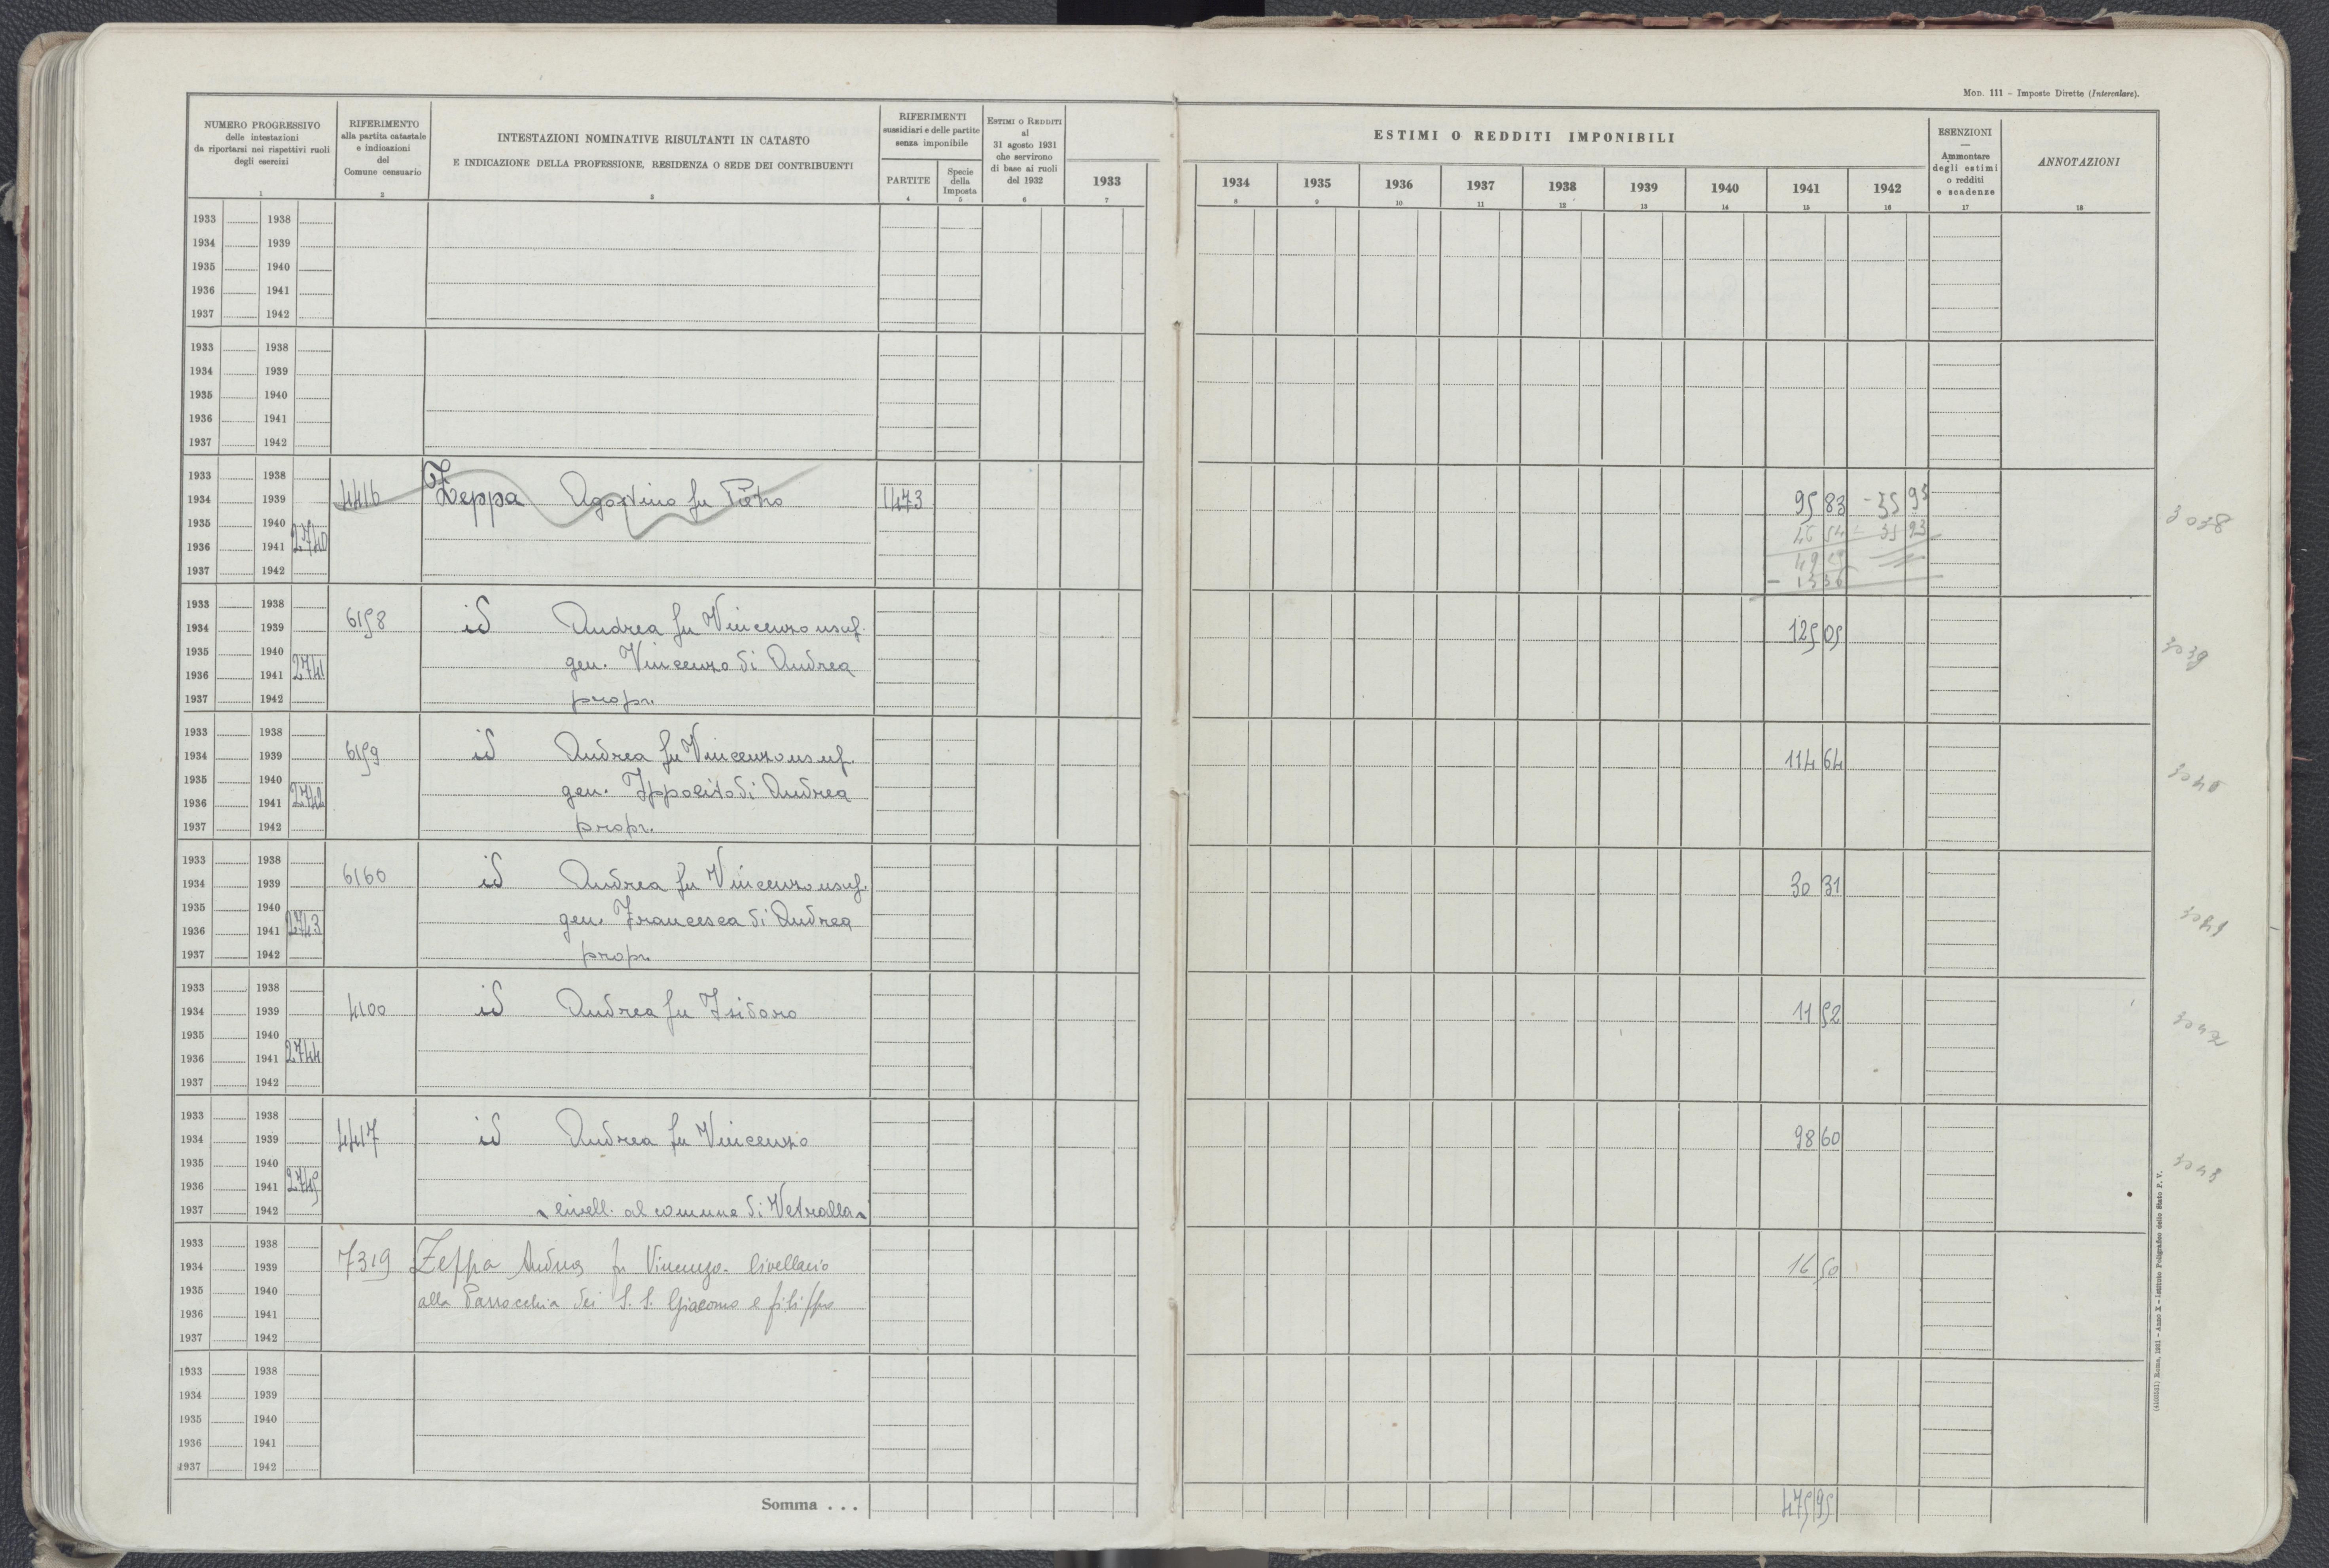 Mon. 111 – Imposte Dirette (Intercalare).
NUMERO PROGRESSIVO
delle intestazioni
da riportarsi nei rispettivi ruoli
degli esercizi
1
RIFERIMENTO
alla partita catastale
e indicazioni
del
Comune censuario
2
INTESTAZIONI NOMINATIVE RISULTANTI IN CATASTO
E INDICAZIONE DELLA PROFESSIONE, RESIDENZA O SEDE DEI CONTRIBUENTI
3
RIFERIMENTI
sussidiari e delle partite
senza imponibile
PARTITE
4
Specie
della
Imposta
5
ESTIMI O REDDITI
al
31 agosto 1931
che servirono
di base ai ruoli
del 1932
6
1933
7
ESTIMI O REDDITI IMPONIBILI
1934 1935 1936 1937 1938 1939 1940 1941 1942
8 9 10 11 12 13 14 15 16
ESENZIONI
—
Ammontare
degli estimi
o redditi
e scadenze
17
ANNOTAZIONI
18
1933 1938
1934 1939
1935 1940
1936 1941
1937 1942
1933 1938
1934 1939
1935 1940
1936 1941
1937 1942
1933 1938
1934 1939 4416 Zeppa Agostino fu Pietro 1473 95 83 - 35 93
1935 1940 3038
1936 1941 2740
1937 1942
1933 1938
1934 1939 6158 id Andrea fu Vincenzo usuf. 125 05
1935 1940 gen. Vincenzo di Andrea 3039
1936 1941 2741
1937 1942 propr.
1933 1938
1934 1939 6159 id Andrea fu Vincenzo usuf. 114 64
1935 1940 gen. Ippolito di Andrea 3040
1936 1941 2742
1937 1942 propr.
1933 1938
1934 1939 6160 id Andrea fu Vincenzo usuf. 30 31
1935 1940 gen. Francesca di Andrea 3041
1936 1941 2743
1937 1942 propr.
1933 1938
1934 1939 4100 id Andrea fu Isidoro 11 52
1935 1940 3042
1936 1941 2744
1937 1942
1933 1938
1934 1939 4417 id Andrea fu Vincenzo 98 60
1935 1940 3043
1936 1941 2745
1937 1942 livell. al comune di Vetralla
1933 1938
1934 1939 7319 Zeppa Andrea fu Vincenzo livellario 16 50
1935 1940 alla Parrocchia dei S. S. Giacomo e filippo
1936 1941
1937 1942
1933 1938
1934 1939
1935 1940
1936 1941
1937 1942
Somma . . . 475 95
(4100531) Roma, 1931 – Anno X – Istituto Poligrafico dello Stato P. V.